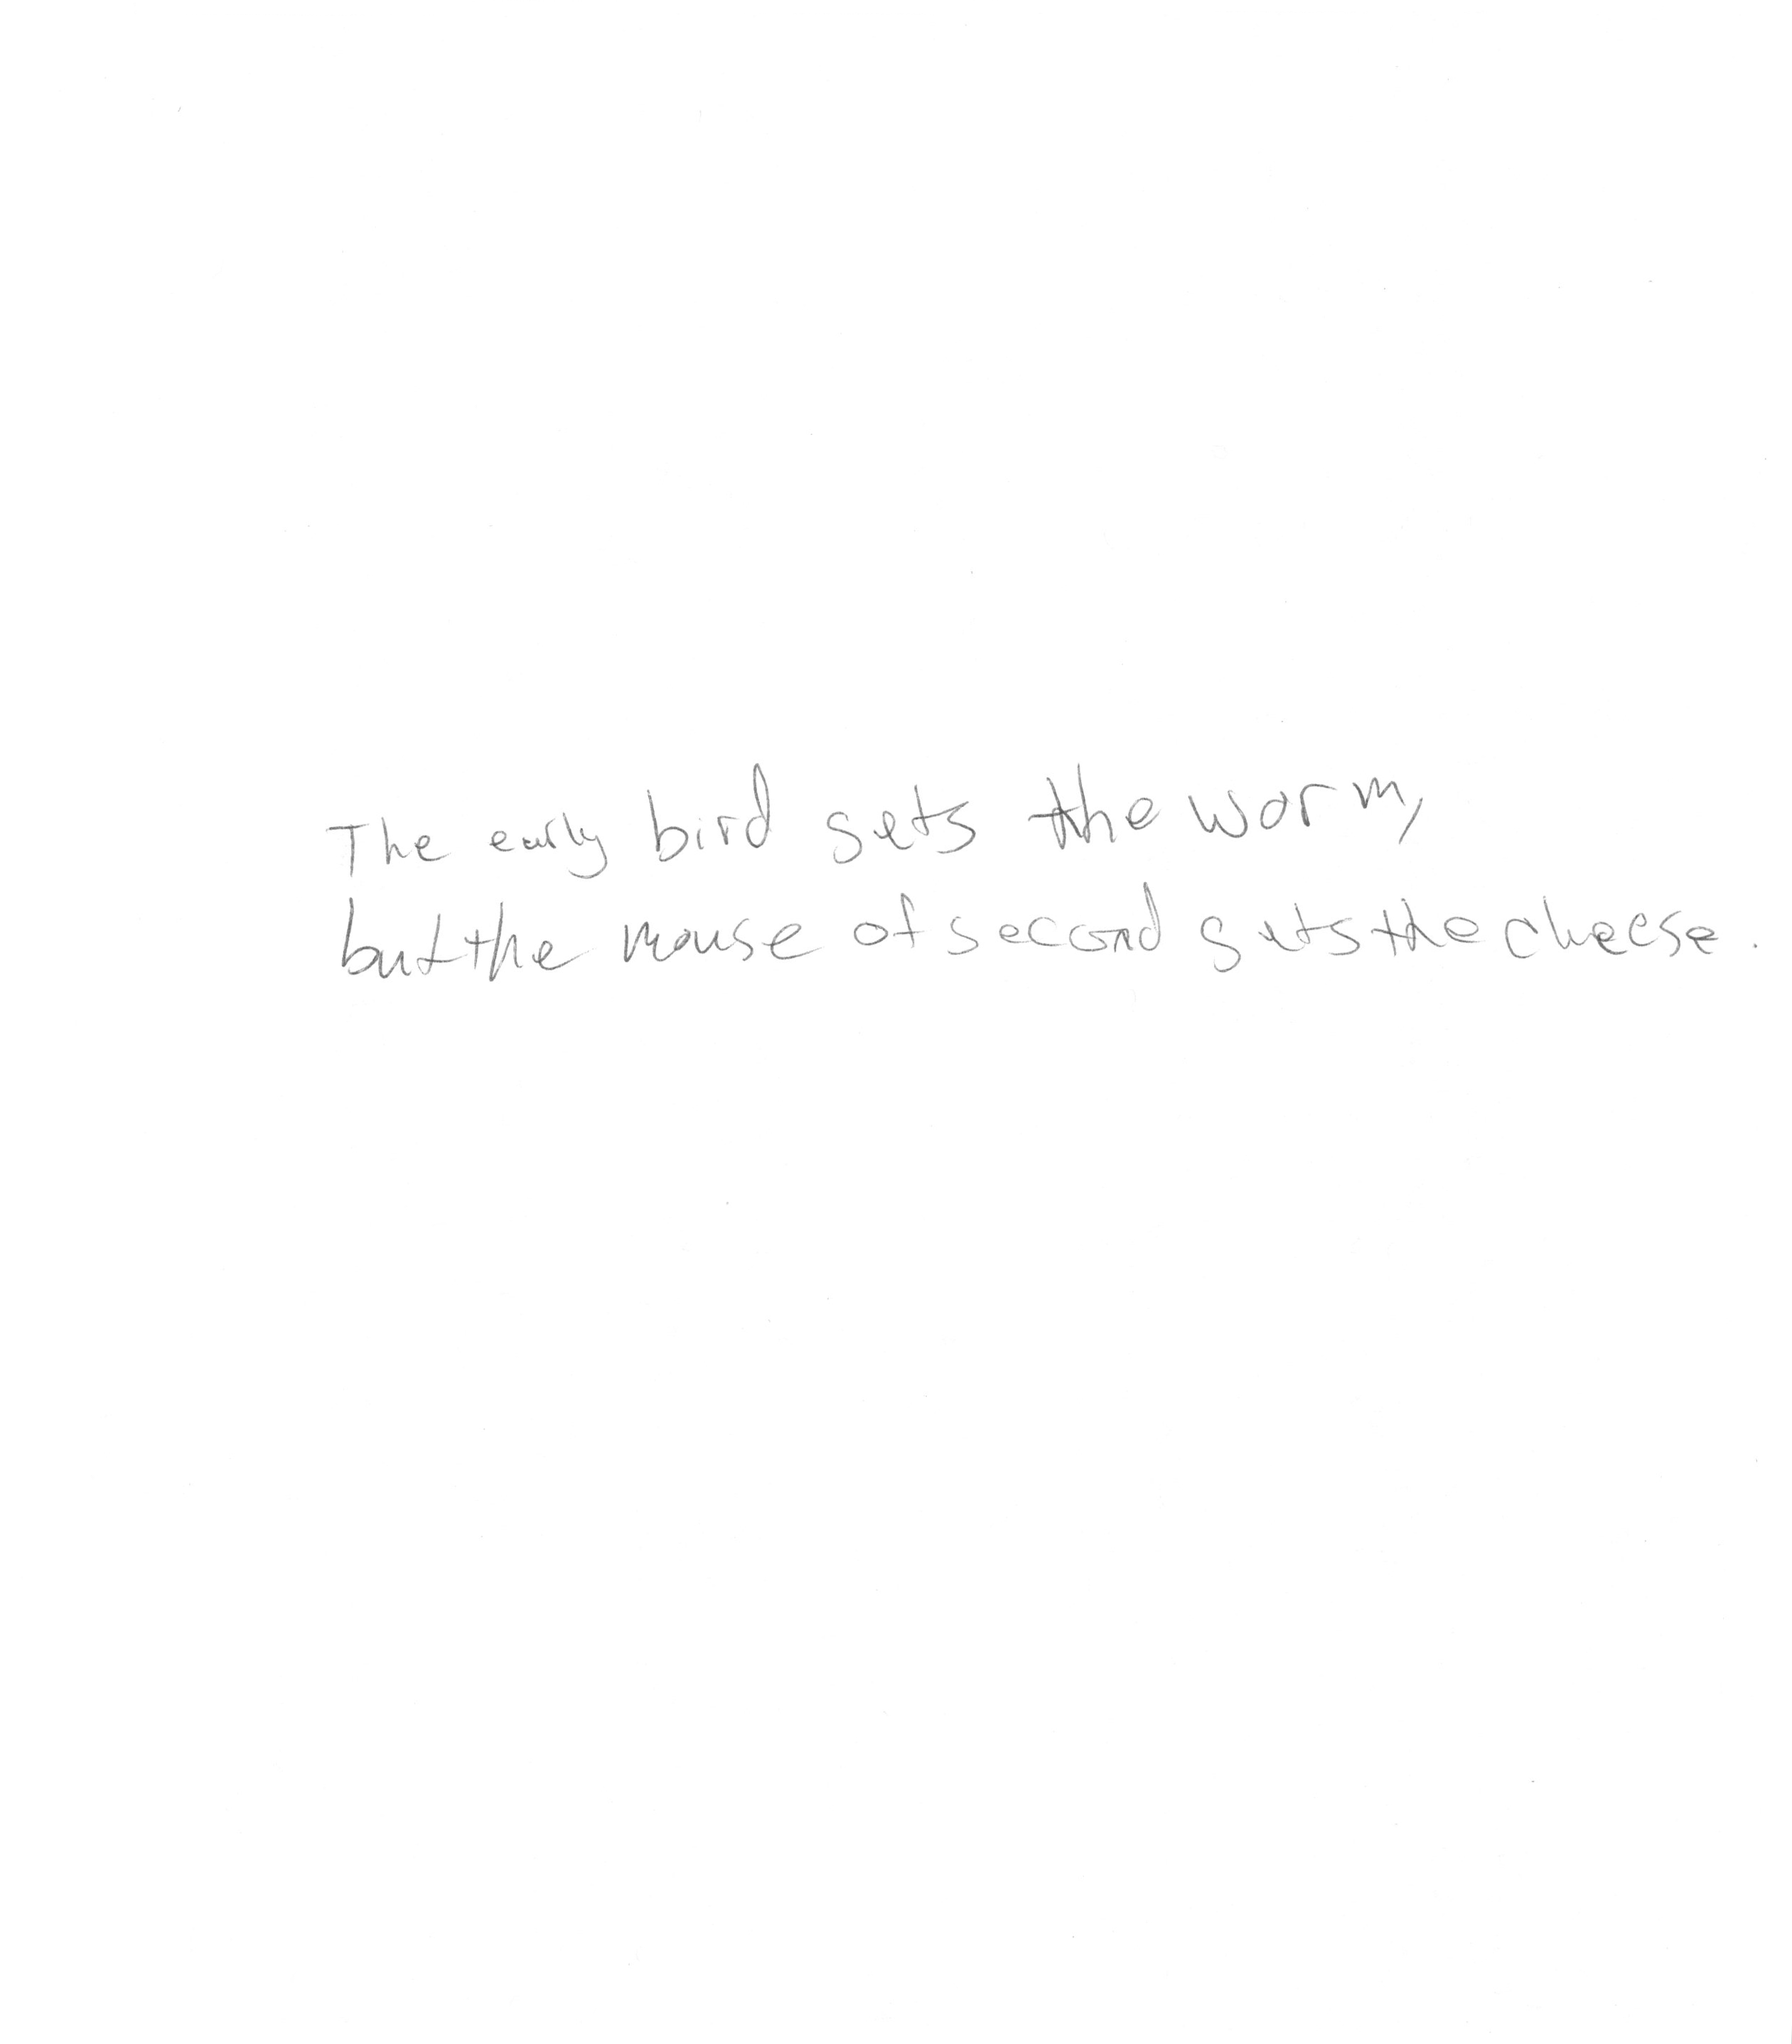 The early bird gets the worm,
but the mouse of second gets the cheese.